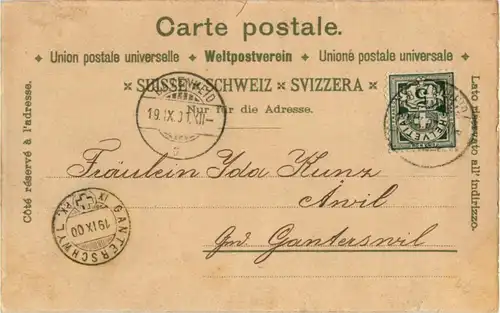 Carte postale.
Union postale universelle Weltpostverein Unione postale universale
SUISSE SCHWEIZ SVIZZERA
Nur für die Adresse.
Côté réservé à l'adresse.
Lato riservato all' indirizzo.
19.IX.
HELVETIA
Fräulein Ida Kunz
Anwil
Gde. Ganterswil
GANTERSCHWYL
19 IX 00